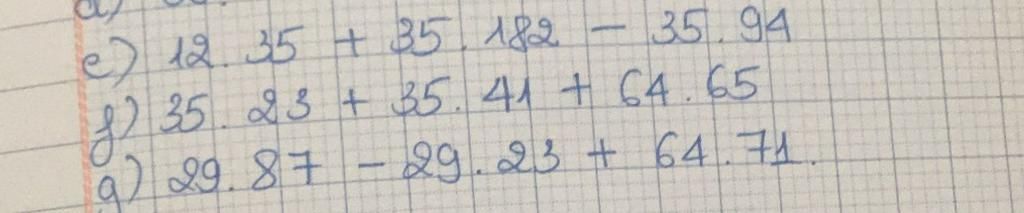 e) 12.35 + 35.182 - 35.94
f) 35.23 + 35.41 + 64.65
g) 29.87 - 29.23 + 64.71.